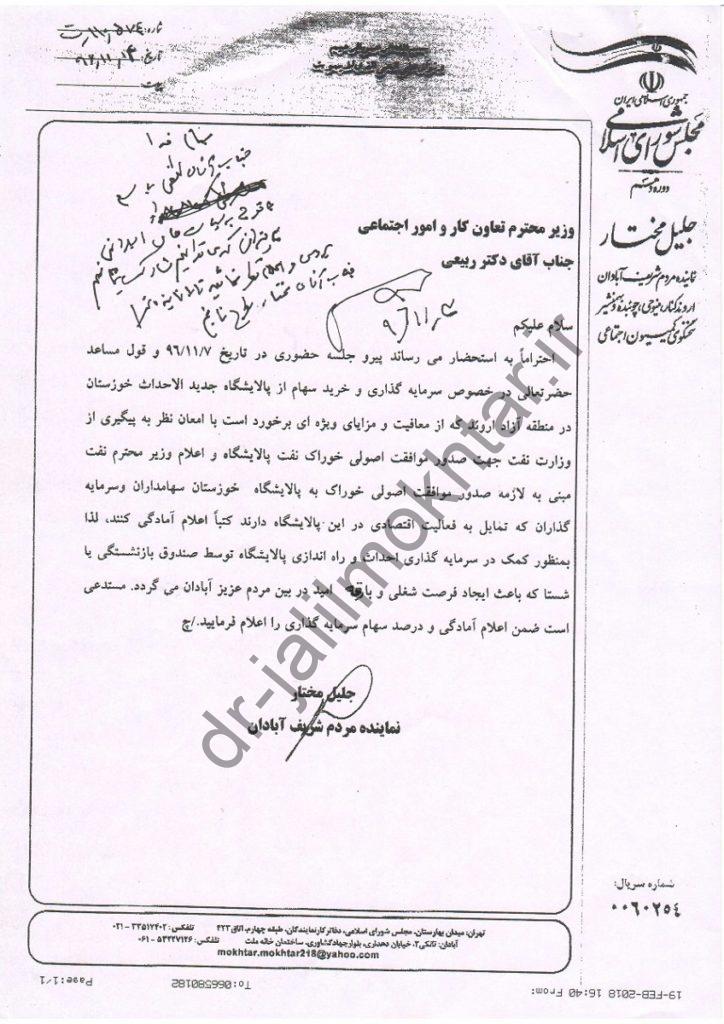 شماره: ۱۱۲۰۵۷۴ت
تاریخ: ۹۶،۱۱،۱۴
پیوست
جمهوری اسلامی ایران
مجلس شورای اسلامی
دوره دهم
جلیل مختار
نماینده مردم شریف آبادان
اروندکنار، مینوحی، چوئبده و بهمنشیر
سخنگوی کمیسیون اجتماعی
بنام خدا
وزیر محترم تعاون کار و امور اجتماعی
جناب آقای دکتر ربیعی
سلام علیکم
احتراماً به استحضار می رساند پیرو جلسه حضوری در تاریخ ۹۶/۱۱/۷ و قول مساعد
حضرتعالی در خصوص سرمایه گذاری و خرید سهام از پالایشگاه جدید الاحداث خوزستان
در منطقه آزاد اروند که از معافیت و مزایای ویژه ای برخورد است با امعان نظر به پیگیری از
وزارت نفت جهت صدور موافقت اصولی خوراک نفت پالایشگاه و اعلام وزیر محترم نفت
مبنی به لازمه صدور موافقت اصولی خوراک به پالایشگاه خوزستان سهامداران وسرمایه
گذاران که تمایل به فعالیت اقتصادی در این پالایشگاه دارند کتباً اعلام آمادگی کنند، لذا
بمنظور کمک در سرمایه گذاری احداث و راه اندازی پالایشگاه توسط صندوق بازنشستگی یا
شستا که باعث ایجاد فرصت شغلی و بارقه امید در بین مردم عزیز آبادان می گردد. مستدعی
است ضمن اعلام آمادگی و درصد سهام سرمایه گذاری را اعلام فرمایید./چ
جلیل مختار
نماینده مردم شریف آبادان
dr-jalilmokhtar.ir
شماره سریال:
۰۰۶۰۲۵۴
تهران: میدان بهارستان، مجلس شورای اسلامی، دفاتر کار نمایندگان، طبقه چهارم، اتاق ۴۲۳ تلفکس: ۳۳۵۱۲۴۰۲ - ۰۲۱
آبادان: تانکی۲، خیابان دهداری، بلوار جهادکشاورزی، ساختمان خانه ملت تلفکس: ۵۳۲۲۷۱۲۶ - ۰۶۱
mokhtar.mokhtar218@yahoo.com
19-FEB-2018 16:40 From: To:066580182 Page:1/1